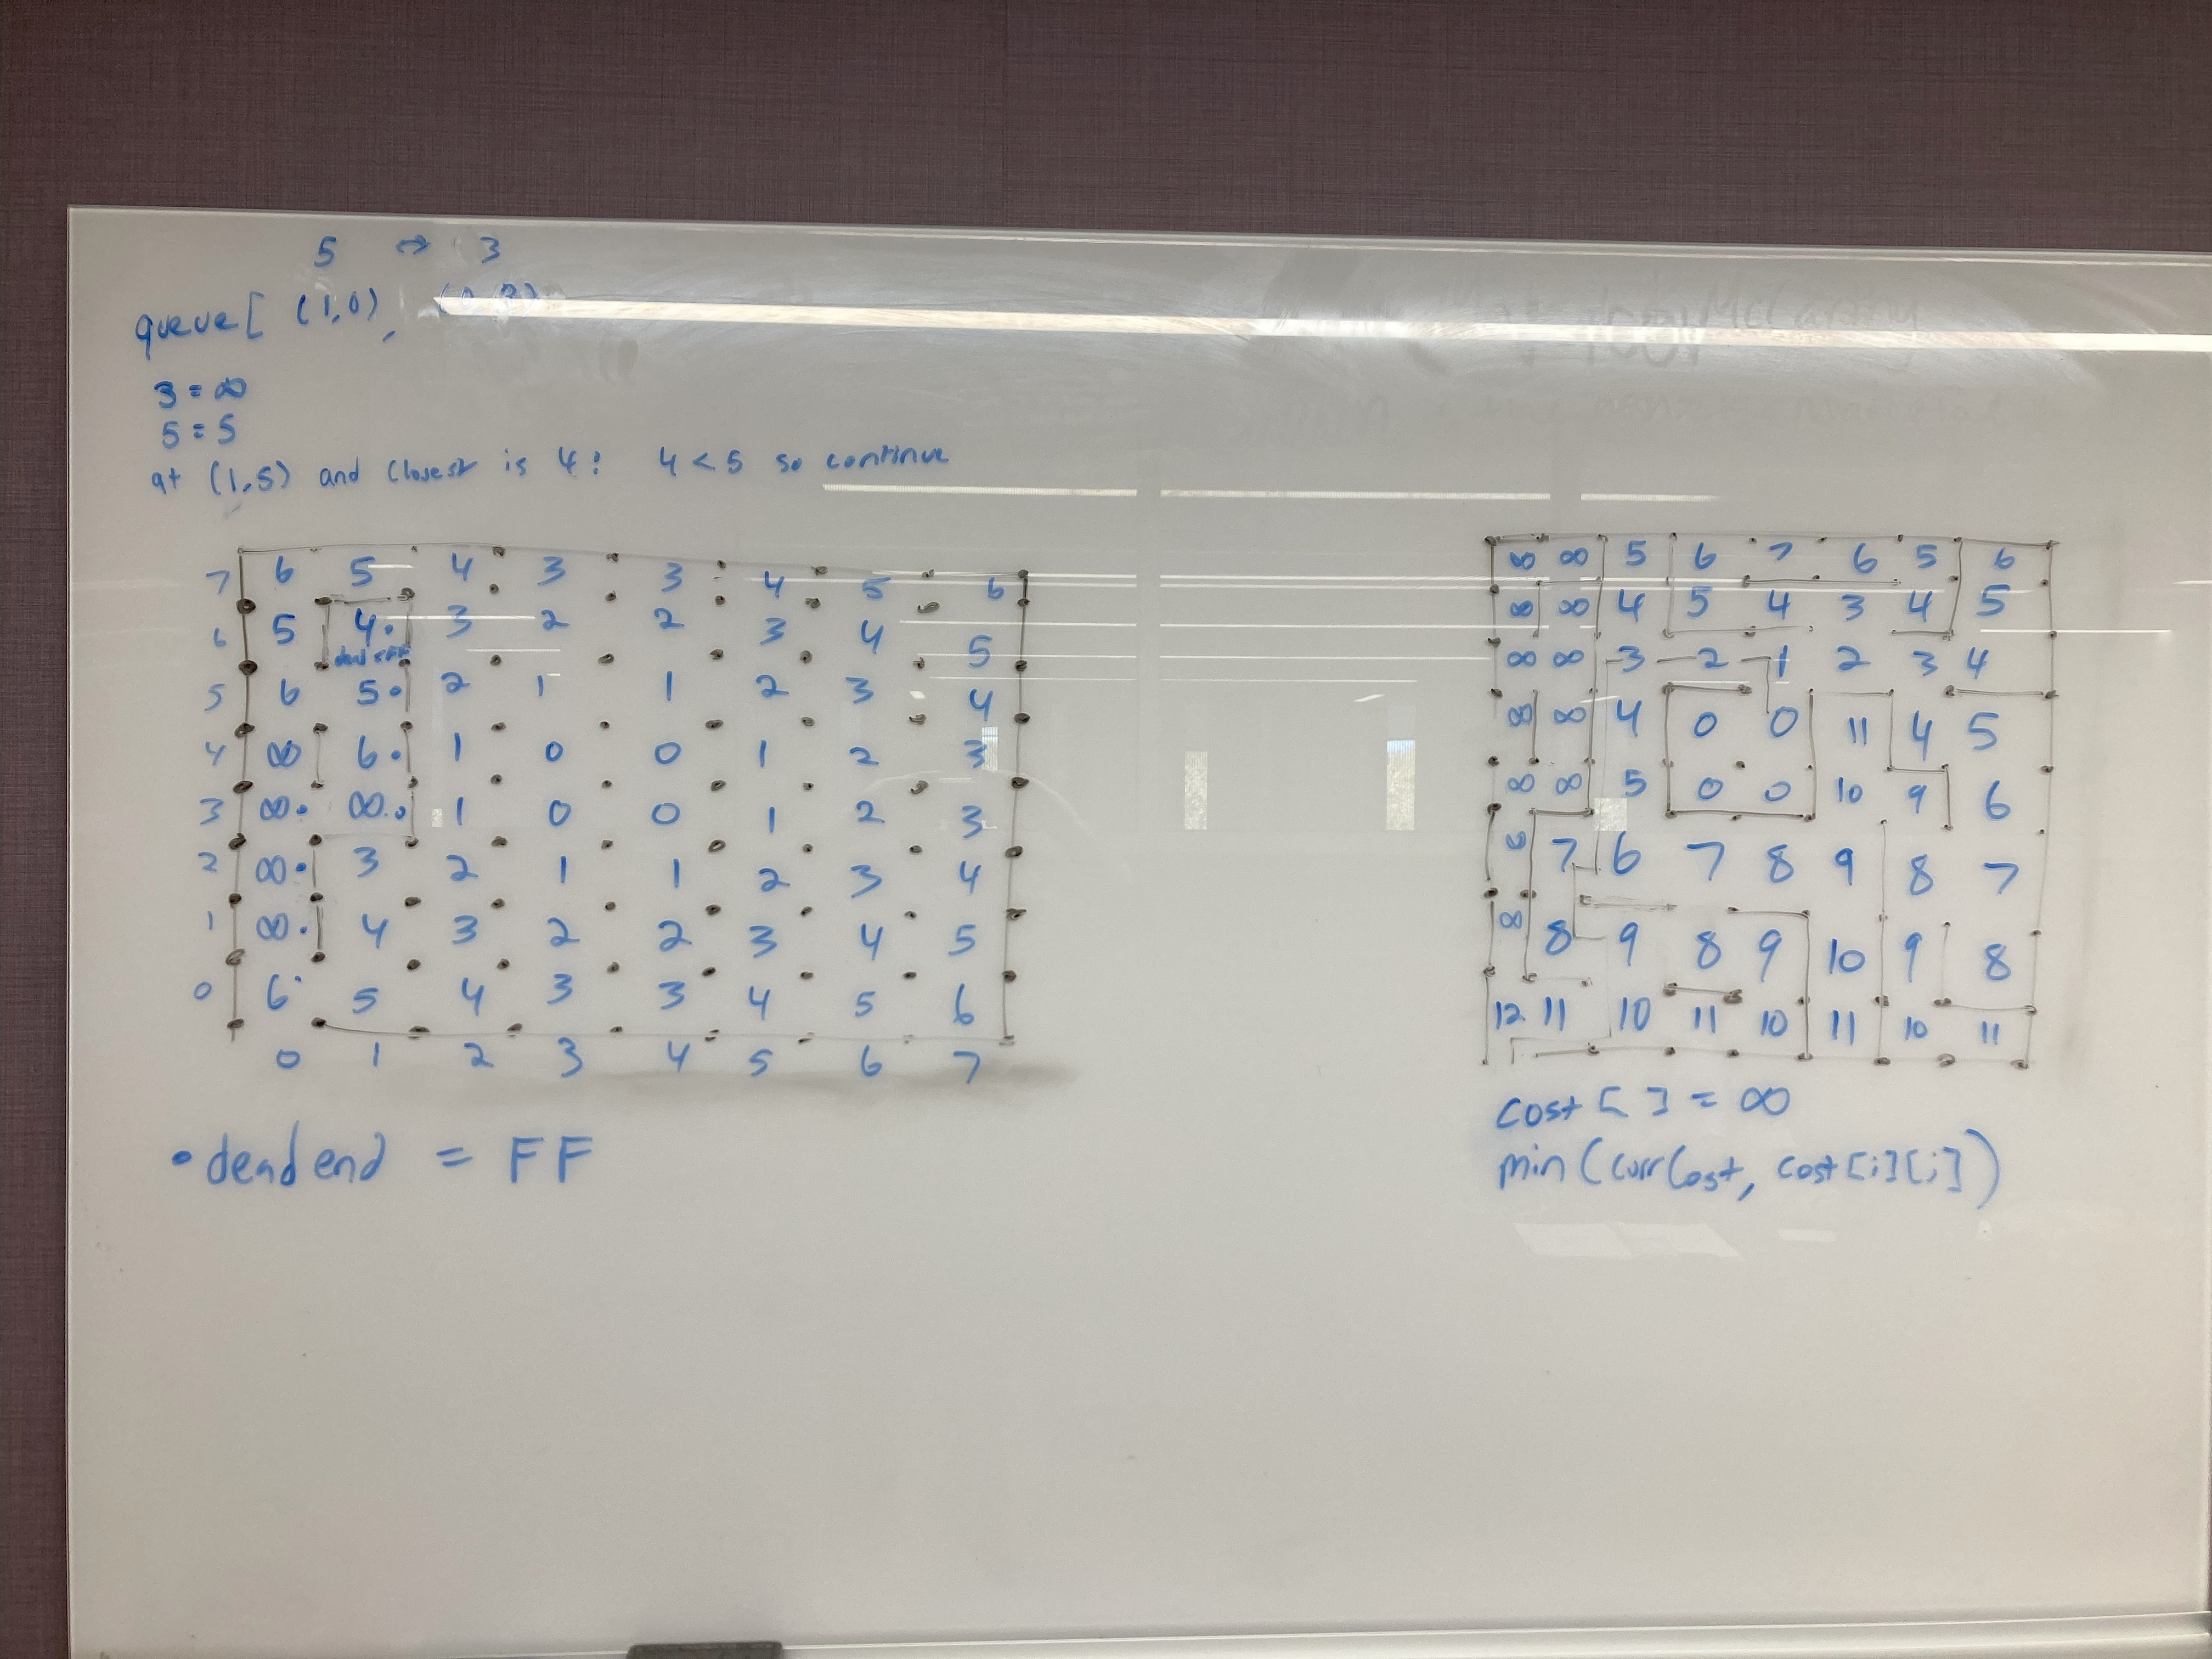 5 ⇔ 3
queue[ (1,0),
3 = ∞
5 = 5
at (1,5) and closest is 4: 4 < 5 so continue
7 6 5 4 3 3 4 5 6
6 5 4 3 2 2 3 4 5
dead
5 6 5 2 1 1 2 3 4
4 ∞ 6 1 0 0 1 2 3
3 ∞ ∞ 1 0 0 1 2 3
2 ∞ 3 2 1 1 2 3 4
1 ∞ 4 3 2 2 3 4 5
0 6 5 4 3 3 4 5 6
0 1 2 3 4 5 6 7
• dead end = FF
∞ ∞ 5 6 7 6 5 6
∞ ∞ 4 5 4 3 4 5
∞ ∞ 3 2 1 2 3 4
∞ ∞ 4 0 0 11 4 5
∞ ∞ 5 0 0 10 9 6
∞ 7 6 7 8 9 8 7
∞ 8 9 8 9 10 9 8
12 11 10 11 10 11 10 11
cost[ ] = ∞
min(currCost, cost[i][j])